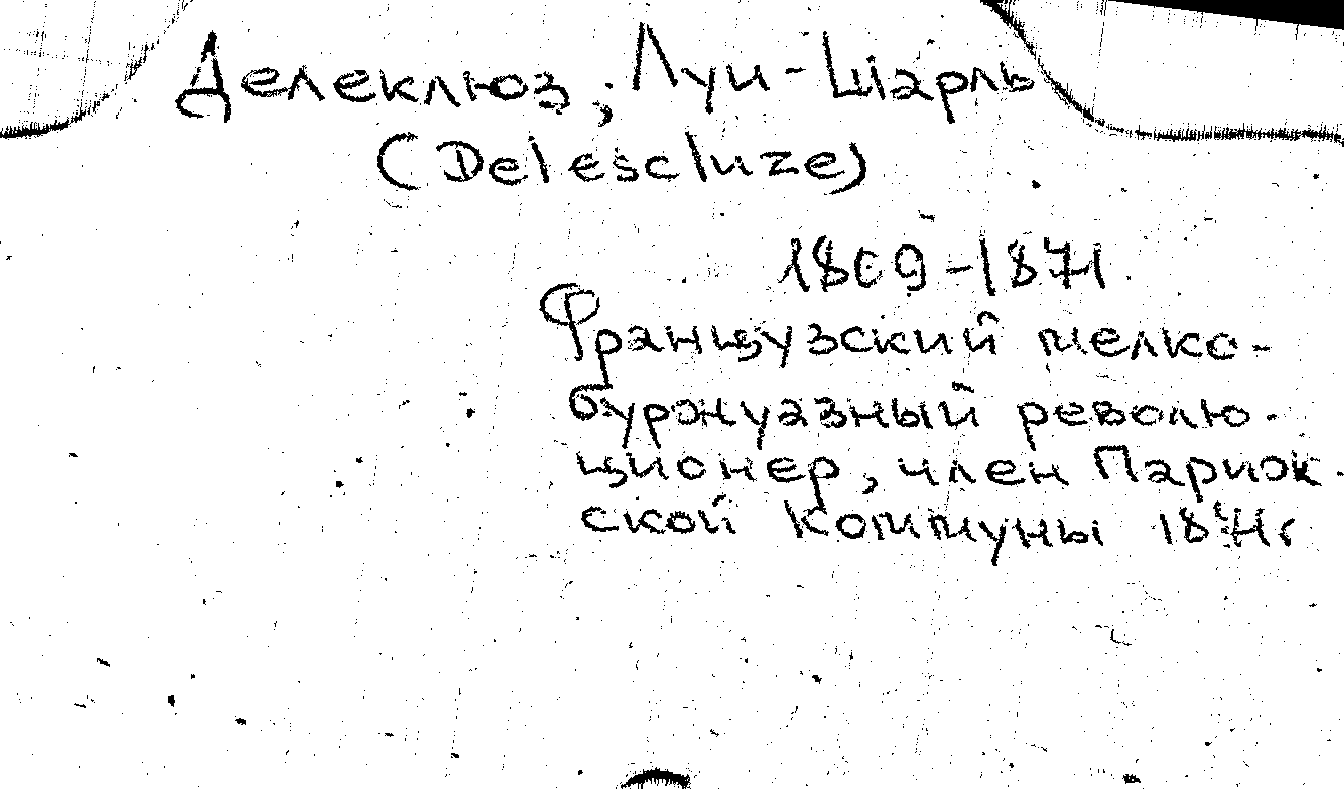 Делеклюз, Луи-Шарль
(Delescluze)
1809-1871.
Французский мелко-
буржуазный револю-
ционер, член Париж-
ской Коммуны 1871г